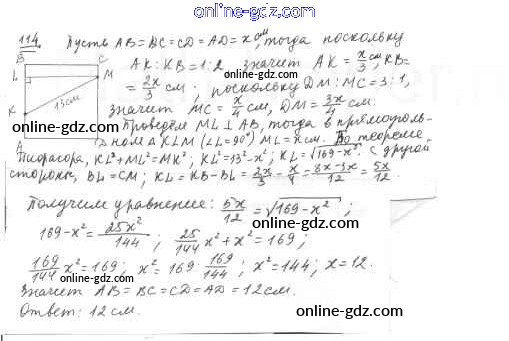 online-gdz.com
114 Пусть AB=BC=CD=AD=x см, тогда поскольку
B C
AK:KB=1:2, значит AK=x/3 см, KB=
L M
=2x/3 см; поскольку DM:MC=3:1,
13см
значит MC=x/4 см, DM=3x/4 см.
K
online-gdz.com
Проведём ML⊥AB, тогда в прямоуголь-
A
ном ΔKLM (∠L=90°) ML=x см. По теореме
Пифагора, KL²+ML²=MK²; KL²=13²-x²; KL=√169-x². С другой
стороны, BL=CM; KL=KB-BL=2x/3-x/4=8x-3x/12=5x/12.
online-gdz.com
Получим уравнение: 5x/12=√169-x²;
169-x²=25x²/144; 25/144x²+x²=169;
online-gdz.com
169/144x²=169; x²=169·169/144; x²=144; x=12.
Значит AB=BC=CD=AD=12см.
online-gdz.com
Ответ: 12см.
online-gdz.com